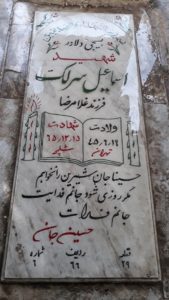 بسیجی دلاور
شهید
اسماعیل سرلک
فرزند غلامرضا
ولادت
۴۵٫۶٫۱۲
تهران
شهادت
۶۵٫۱۲٫۱۵
شلمچه
حسینا جان شیرین را نخواهم
مگر روزی شود جانم فدایت
جانم فدات
حسین جان
قطعه
۲۹
ردیف
۶۶
شماره
۶